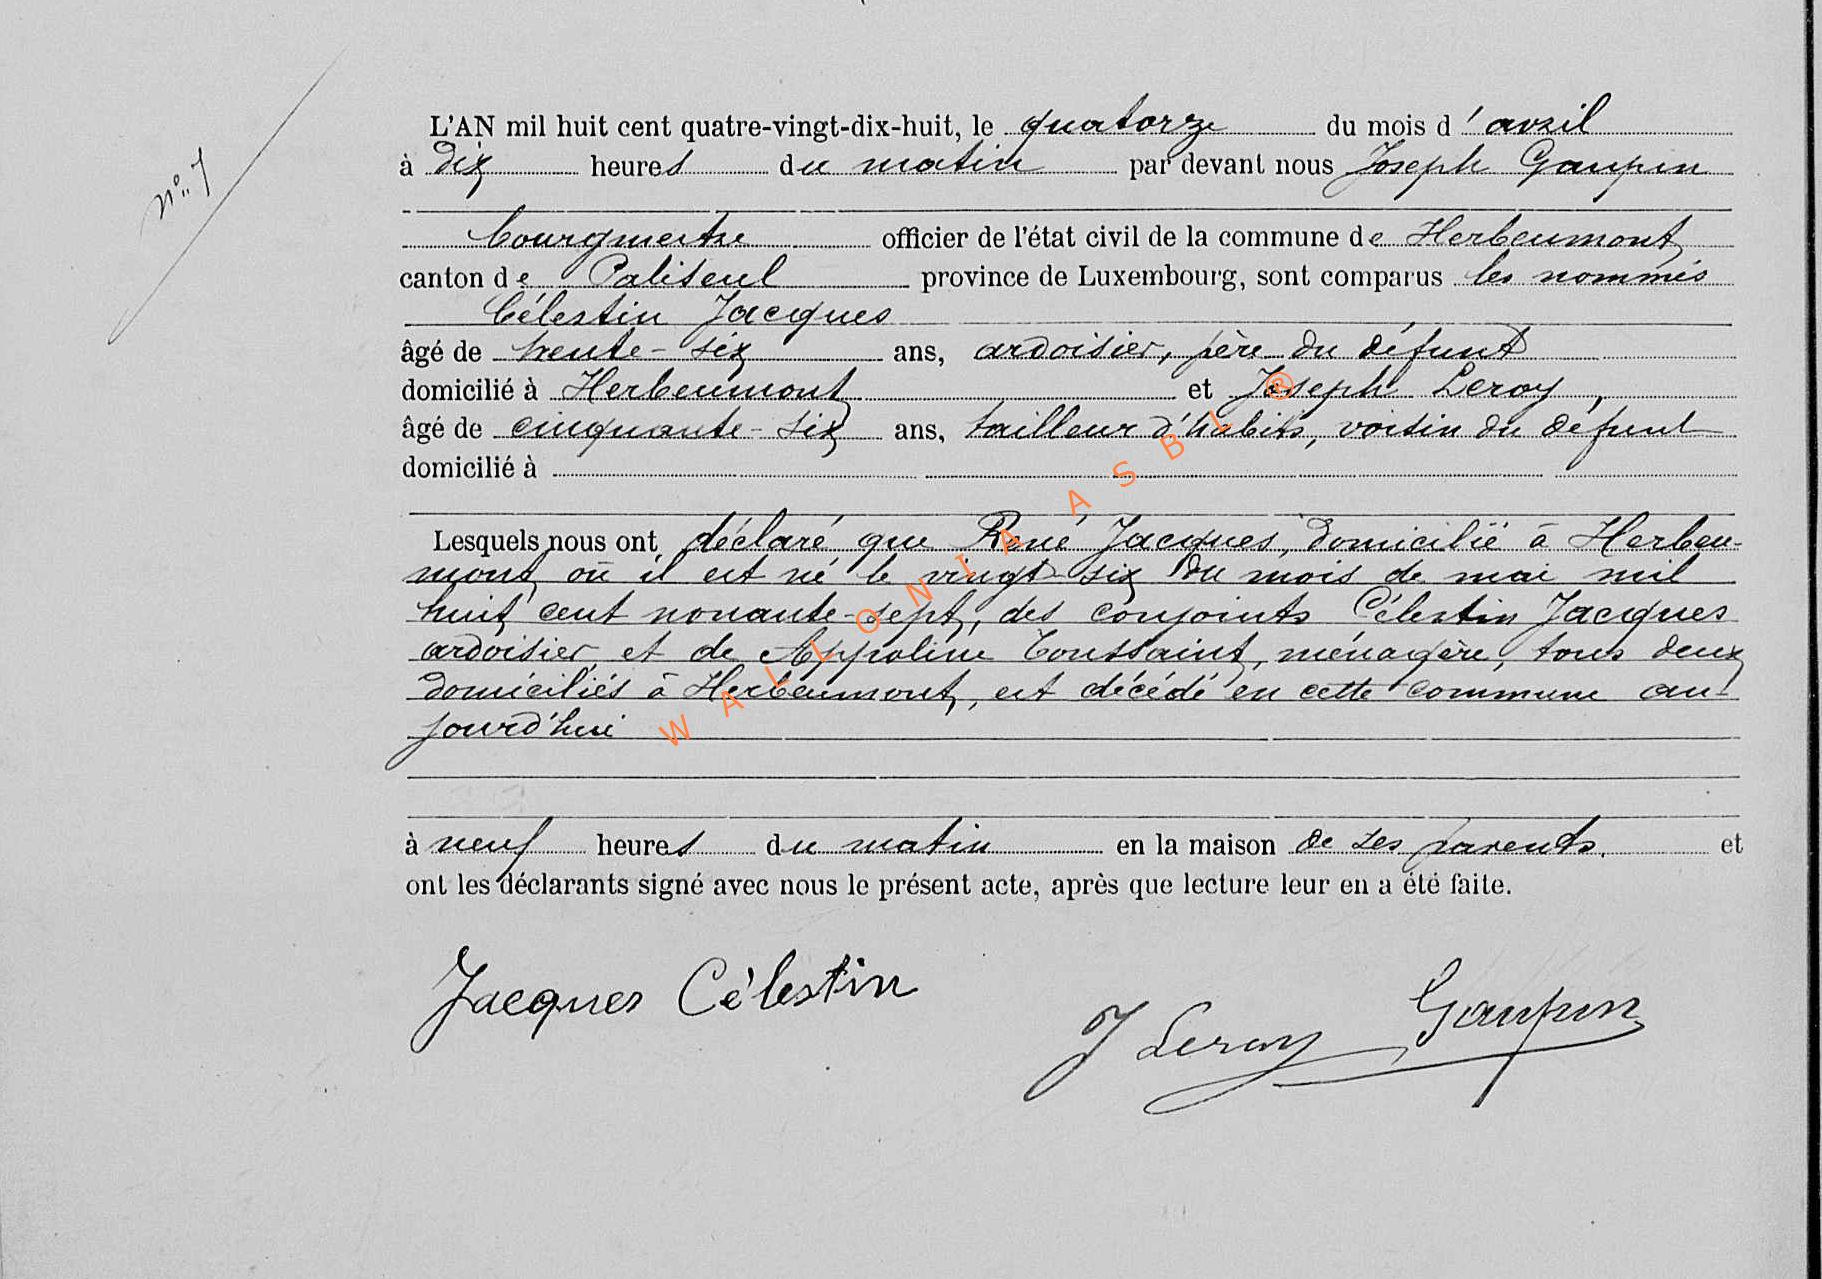 N° 7
L'AN mil huit cent quatre-vingt-dix-huit, le quatorze du mois d'avril
à dix heures du matin par devant nous Joseph Gaupin
bourgmestre officier de l'état civil de la commune de Herbeumont
canton de Paliseul province de Luxembourg, sont comparus les nommés
Célestin Jacques
âgé de trente-six ans, ardoisier, père du défunt
domicilié à Herbeumont et Joseph Leroy,
âgé de cinquante-six ans, tailleur d'habits, voisin du défunt
domicilié à
Lesquels nous ont déclaré que René Jacques, domicilié à Herbeu-
mont, où il est né le vingt-six du mois de mai mil
huit cent nonante-sept, des conjoints Célestin Jacques
ardoisier et de Appoline Toussaint, ménagère, tous deux
domiciliés à Herbeumont, est décédé en cette commune au-
jourd'hui
à neuf heures du matin en la maison de ses parents. et
ont les déclarants signé avec nous le présent acte, après que lecture leur en a été faite.
Jacques Célestin
J Leroy Gaupin
WALLONIA ASBL ®